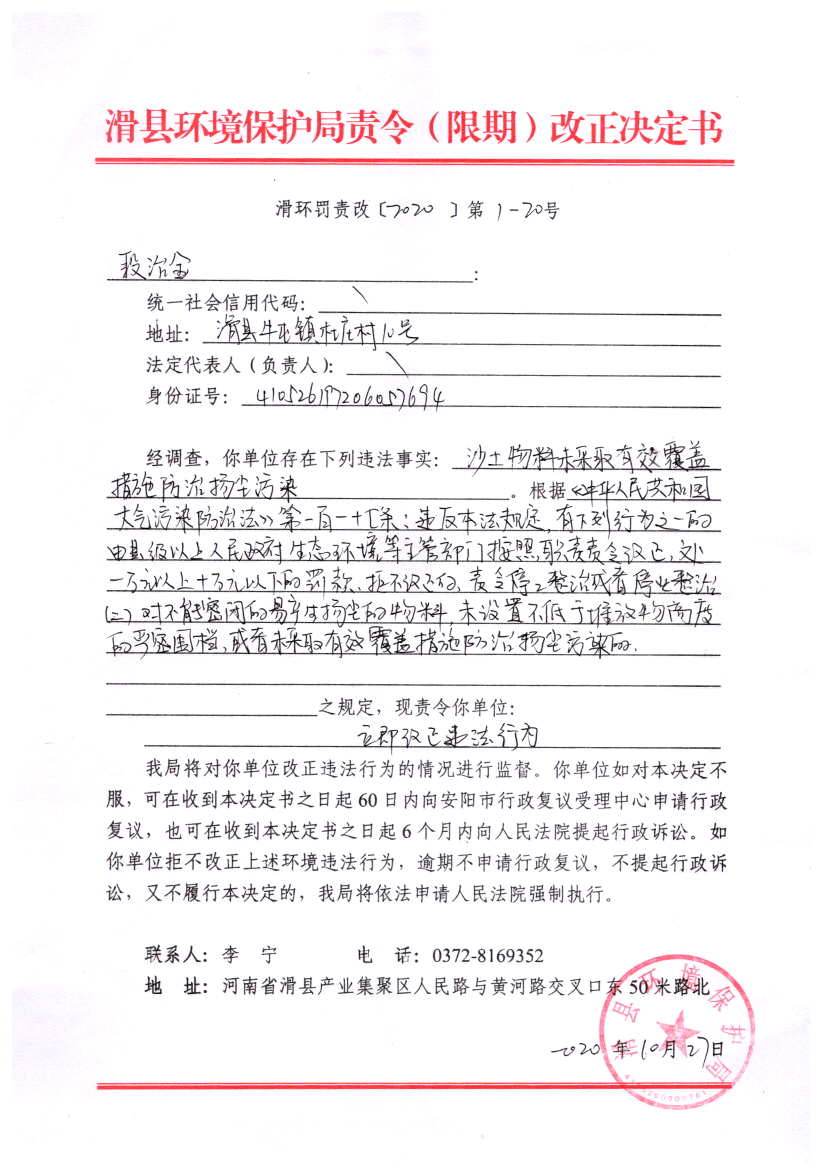 滑县环境保护局责令（限期）改正决定书
滑环罚责改〔2020 〕第 1-20号
段治金：
统一社会信用代码：\
地址：滑县牛屯镇杜庄村10号
法定代表人（负责人）：\
身份证号：410526197206057694
经调查，你单位存在下列违法事实：沙土物料未采取有效覆盖
措施防治扬尘污染。根据《中华人民共和国
大气污染防治法》第一百一十七条：违反本法规定，有下列行为之一的
由县级以上人民政府生态环境等主管部门按照职责责令改正，处
一万元以上十万元以下的罚款，拒不改正的，责令停工整治或者停业整治
(二)对不能密闭的易产生扬尘的物料，未设置不低于堆放物高度
的严密围挡，或者未采取有效覆盖措施防治扬尘污染的.
之规定，现责令你单位：
立即改正违法行为
我局将对你单位改正违法行为的情况进行监督。你单位如对本决定不
服，可在收到本决定书之日起 60 日内向安阳市行政复议受理中心申请行政
复议，也可在收到本决定书之日起 6 个月内向人民法院提起行政诉讼。如
你单位拒不改正上述环境违法行为，逾期不申请行政复议，不提起行政诉
讼，又不履行本决定的，我局将依法申请人民法院强制执行。
联系人：李 宁 电 话：0372-8169352
地 址：河南省滑县产业集聚区人民路与黄河路交叉口东 50 米路北
2020 年 10月 27日
滑县环境保护局